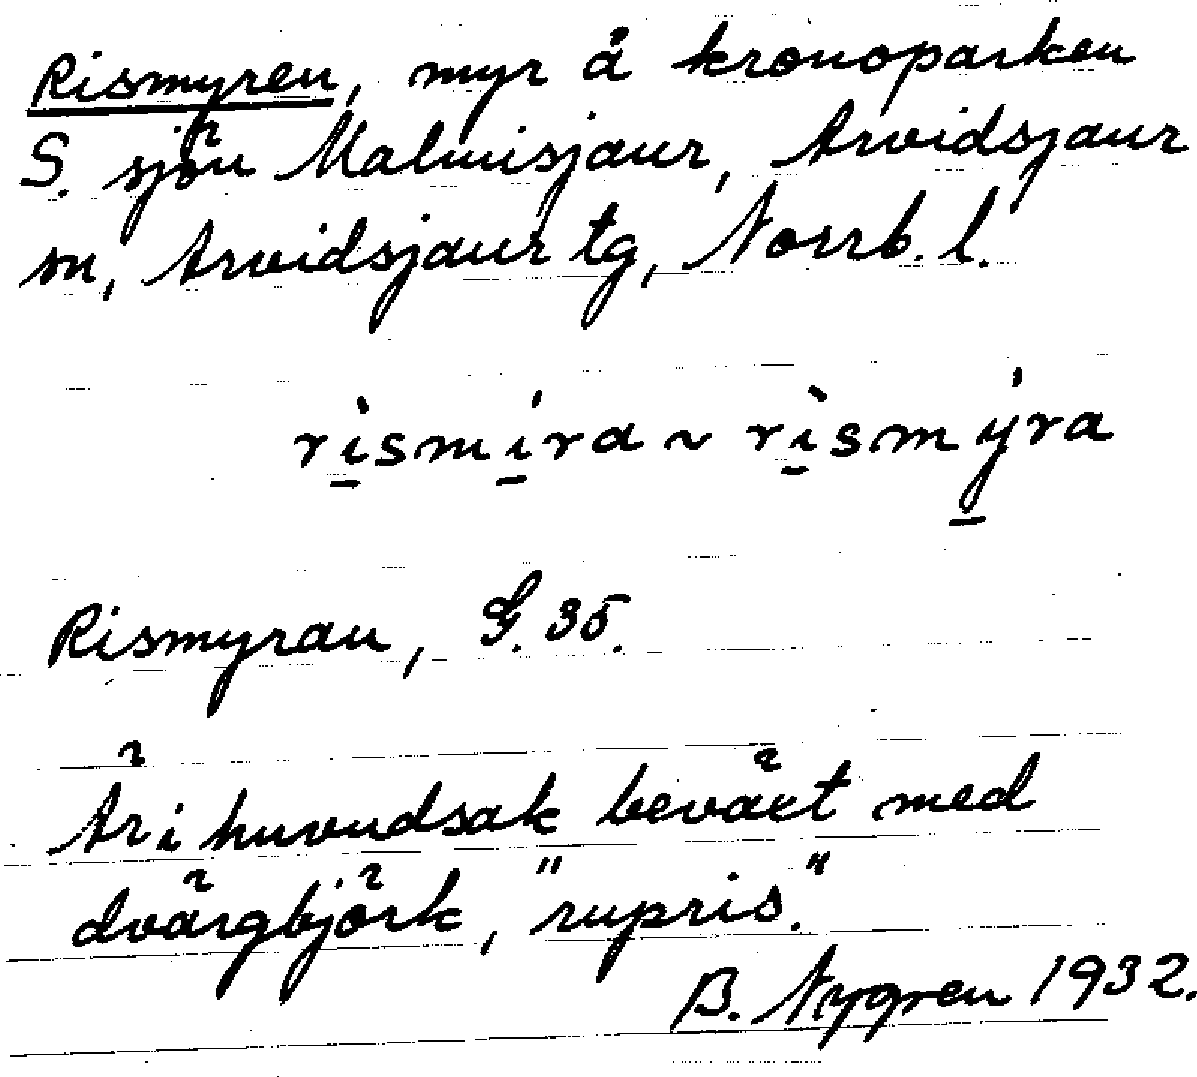 Rismyren, myr å kronoparken
S. sjön Malmisjaur, Arvidsjaur
sn, Arvidsjaur tg, Norrb. l.
rı̱̀smı̱́ra ~ rı̱̀smý̱ra
Rismyran, G. 35.
Är i huvudsak beväxt med
dvärgbjörk, "rupris."
B. Nygren 1932.